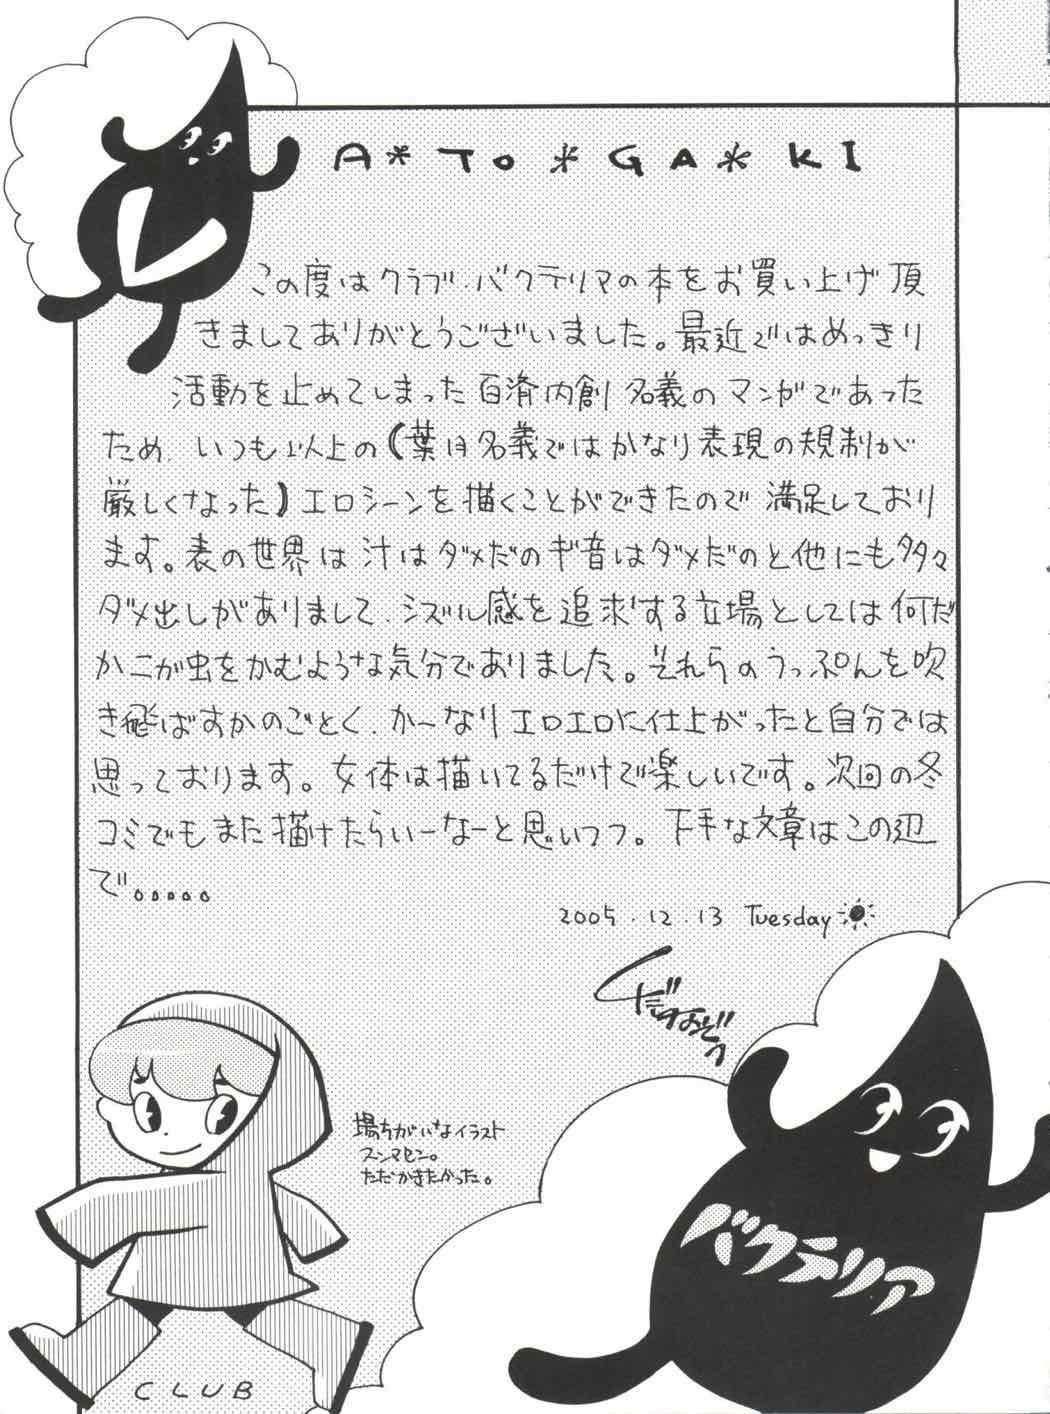 A*TO*GA*KI
この度はクラブ・バクテリアの本をお買い上げ頂
きましてありがとうございました。最近ではめっきり
活動を止めてしまった百済内創名義のマンガであった
ため、いつも以上の(葉月名義ではかなり表現の規制が
厳しくなった)エロシーンを描くことができたので満足しており
ます。表の世界は汁はダメだのギ音はダメだのと他にも多々
ダメ出しがありまして、シズル感を追求する立場としては何だ
か二が虫をかむような気分でありました。それらのうっぷんを吹
き飛ばすかのごとく、かーなりエロエロに仕上がったと自分では
思っております。女体は描いてるだけで楽しいです。次回の冬
コミでもまた描けたらいーなーと思いつつ。下手な文章はこの辺
で。。。。。
2005.12.13 Tuesday
場ちがいなイラスト
スンマセン。
ただかきたかった。
バクテリア
CLUB